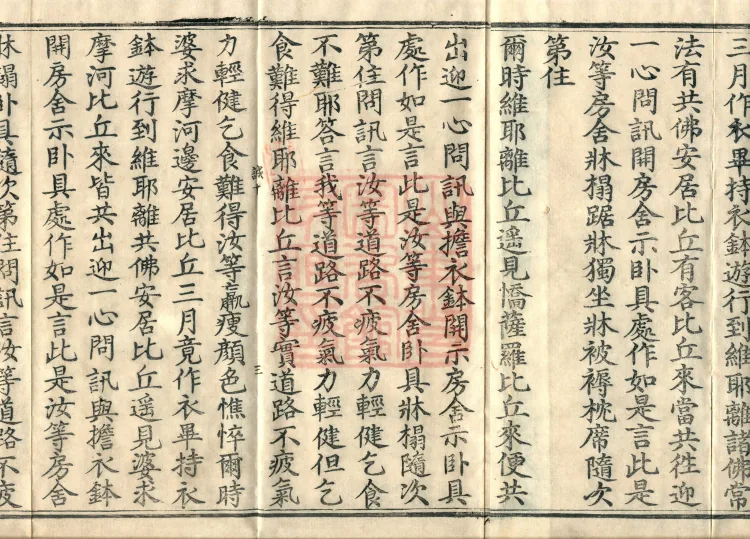 三月作衣畢持衣鉢遊行到維耶離諸佛常
法有共佛安居比丘有客比丘來當共往迎
一心問訊開房舍示卧具處作如是言此是
汝等房舍牀榻踞牀獨坐牀被褥枕席隨次
第住
爾時維耶離比丘遥見憍薩羅比丘來便共
出迎一心問訊與擔衣鉢開示房舍示卧具
處作如是言此是汝等房舍卧具牀榻隨次
第住問訊言汝等道路不疲氣力輕健乞食
不難耶答言我等道路不疲氣力輕健但乞
食難得維耶離比丘言汝等實道路不疲氣
誠十
三
力輕健乞食難得汝等羸瘦顔色憔悴爾時
婆求摩河邊安居比丘三月竟作衣畢持衣
鉢遊行到維耶離共佛安居比丘遥見婆求
摩河比丘來皆共出迎一心問訊與擔衣鉢
開房舍示卧具處作如是言此是汝等房舍
牀榻卧具隨次第住問訊言汝等道路不疲